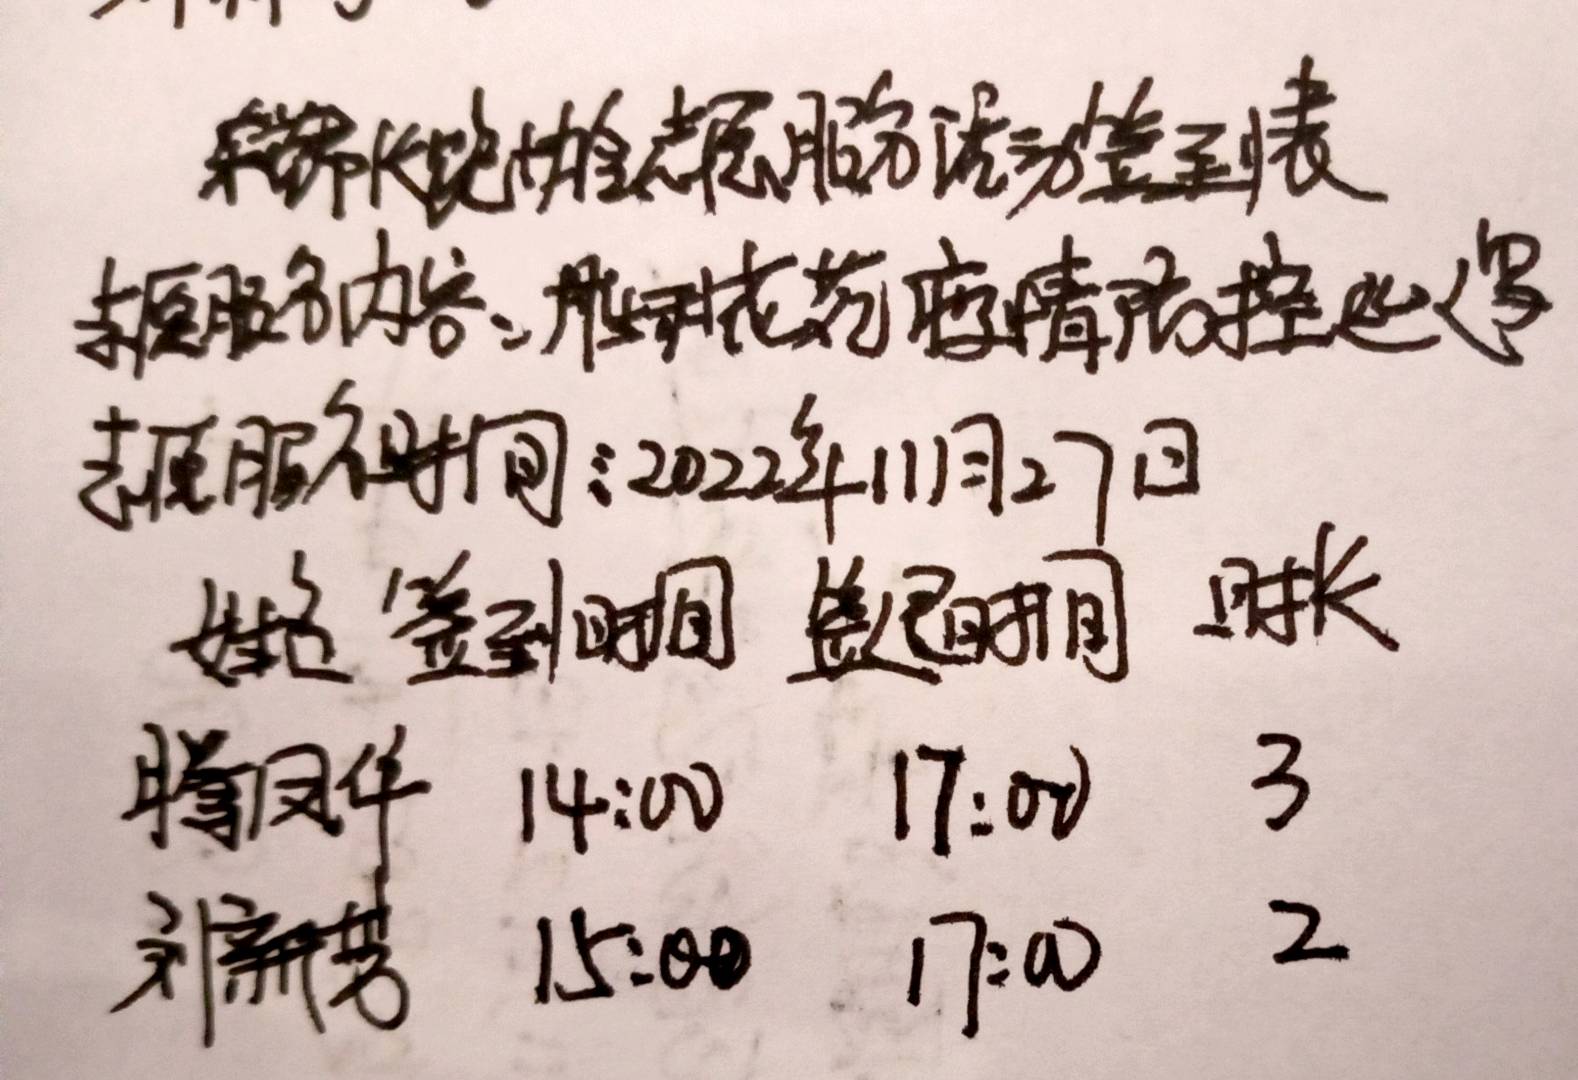 长跑协会志愿服务活动签到表
志愿服务内容:胜利花苑疫情防控巡逻
志愿服务时间:2022年11月27日
姓名 签到时间 签退时间 时长
腾凤华 14:00 17:00 3
刘新芳 15:00 17:00 2